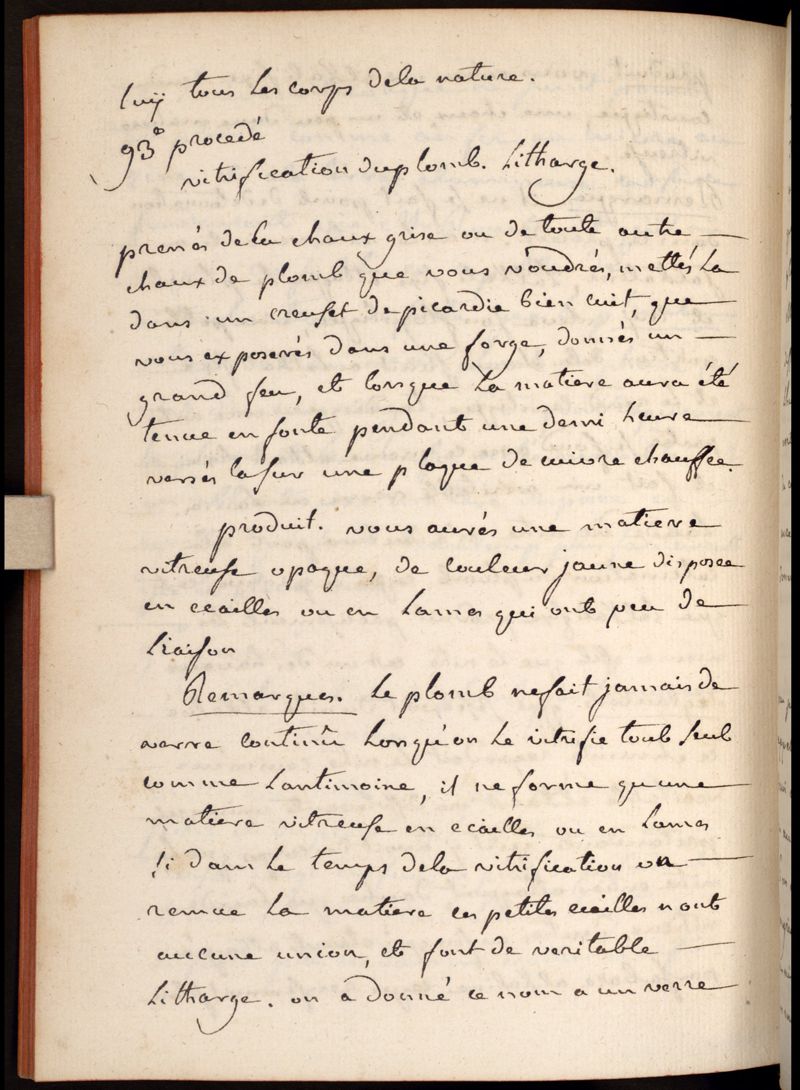 luy tous les corps dela nature.
93e procedé
vitrification duplomb. Litharge.
prenés dela chaux grise ou de toute autre
chaux de plomb que vous voudrés, mettés la
dans un creuset de picardie bien cuit, que
vous exposerés dans une forge, donnés un
grand feu, et lorsque la matiere aura été
tenue en fonte pendant une demi heure
versés la sur une plaque de cuivre chauffée.
produit. vous aurés une matiere
vitreuse opaque, de couleur jaune disposée
en ecailles ou en lames qui ont peu de
liaison
Remarques. Le plomb ne fait jamais de
verre continû lorsqu'on le vitrifie tout seul
comme lantimoine, il ne forme qu'une
matiere vitreuse en ecailles ou en lames
si dans le temps dela vitrification on
remue la matiere ces petites ecailles nont
aucune union, et font de veritable
Litharge. on a donné ce nom a un verre